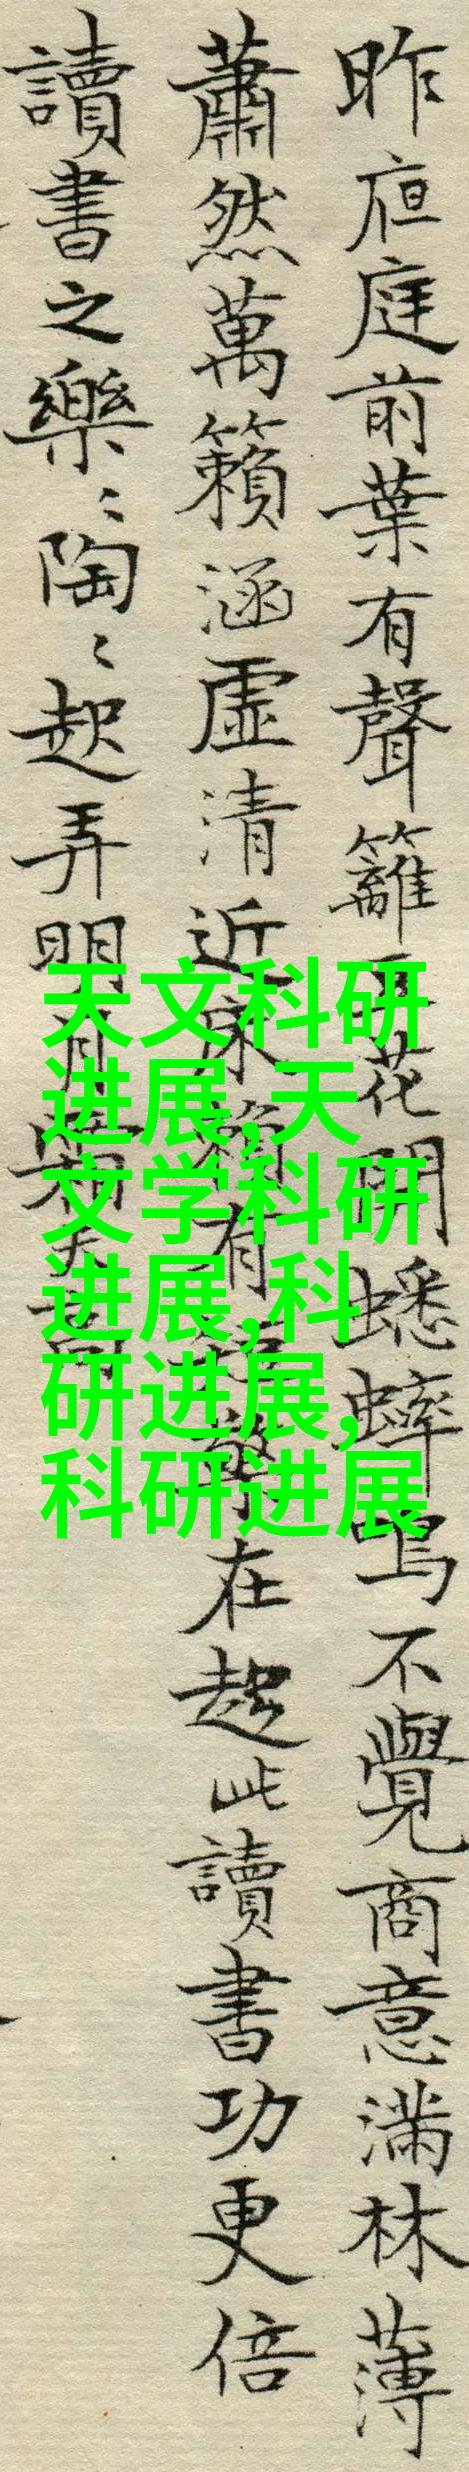 昨夜庭前葉有聲籬豆花開蟋蟀鳴不覺商意滿林薄
蕭然萬籟涵虛清近床賴有在起此讀書功更倍
讀書之樂〻陶〻起弄明月霜天高
天文科研
进展,天
文学科研
进展,科
研进展,
科研进展